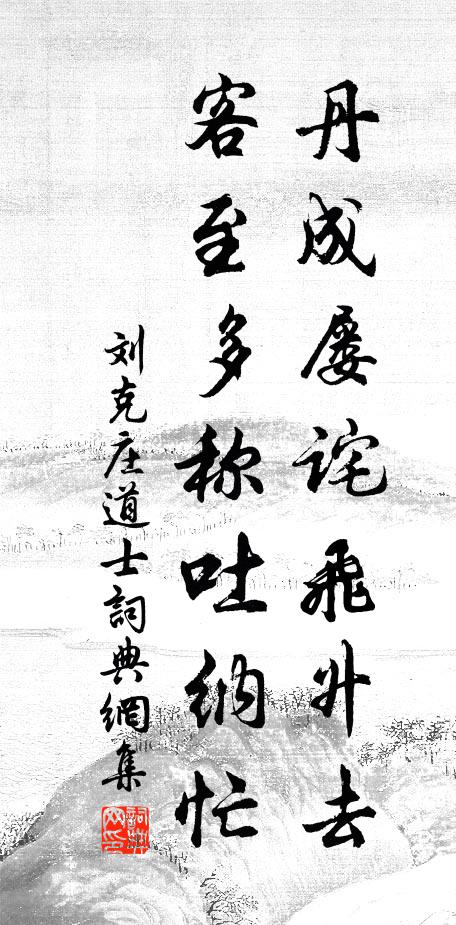 丹成屡诧飛升去
客至多称吐納忙
刘克庄道士詞典網集